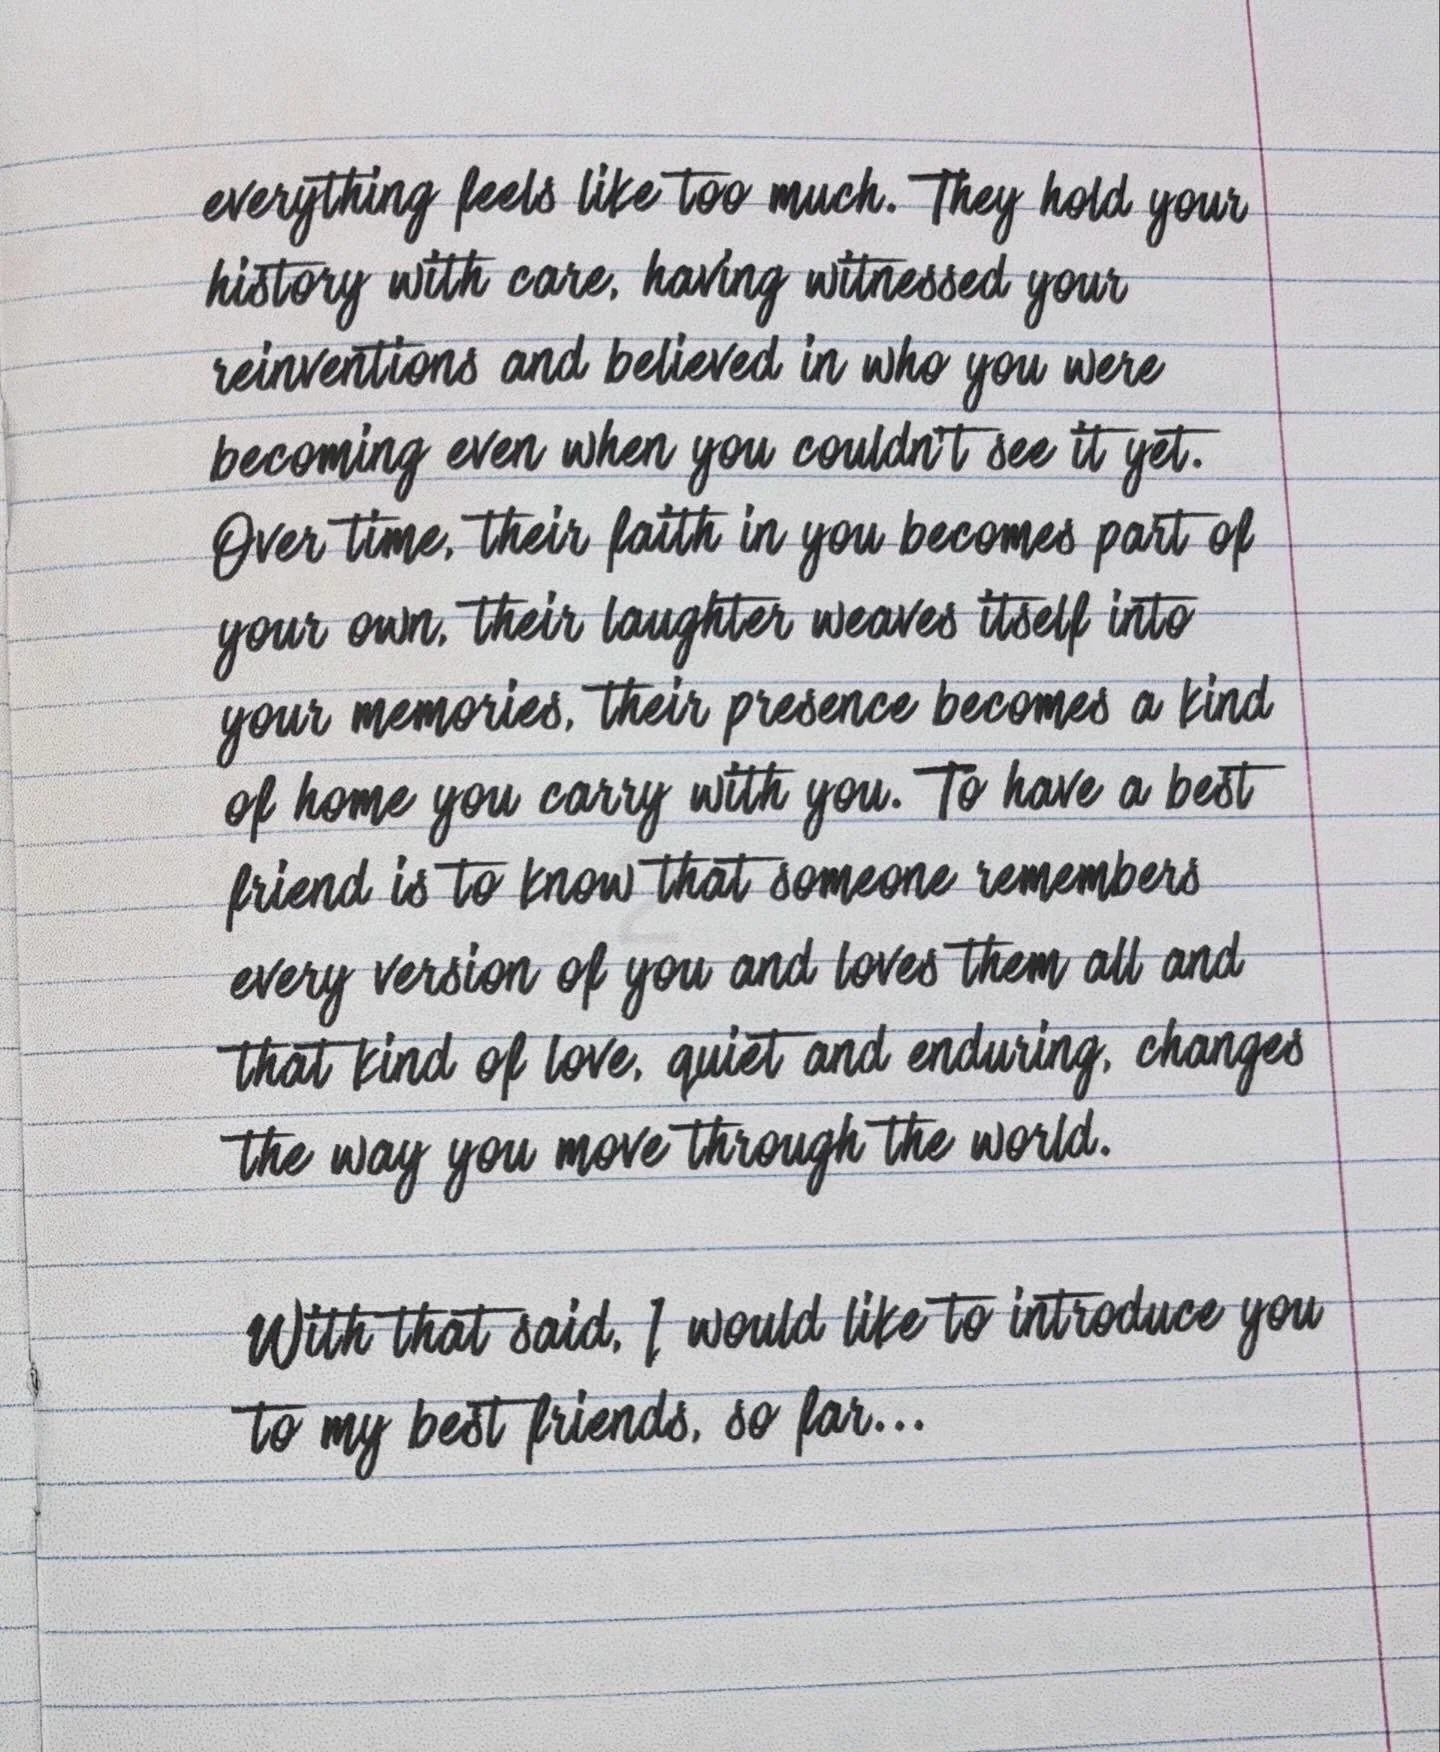 everything feels like too much. They hold your
history with care, having witnessed your
reinventions and believed in who you were
becoming even when you couldn't see it yet.
Over time, their faith in you becomes part of
your own, their laughter weaves itself into
your memories, their presence becomes a kind
of home you carry with you. To have a best
friend is to know that someone remembers
every version of you and loves them all and
that kind of love, quiet and enduring, changes
the way you move through the world.

With that said, I would like to introduce you
to my best friends, so far...